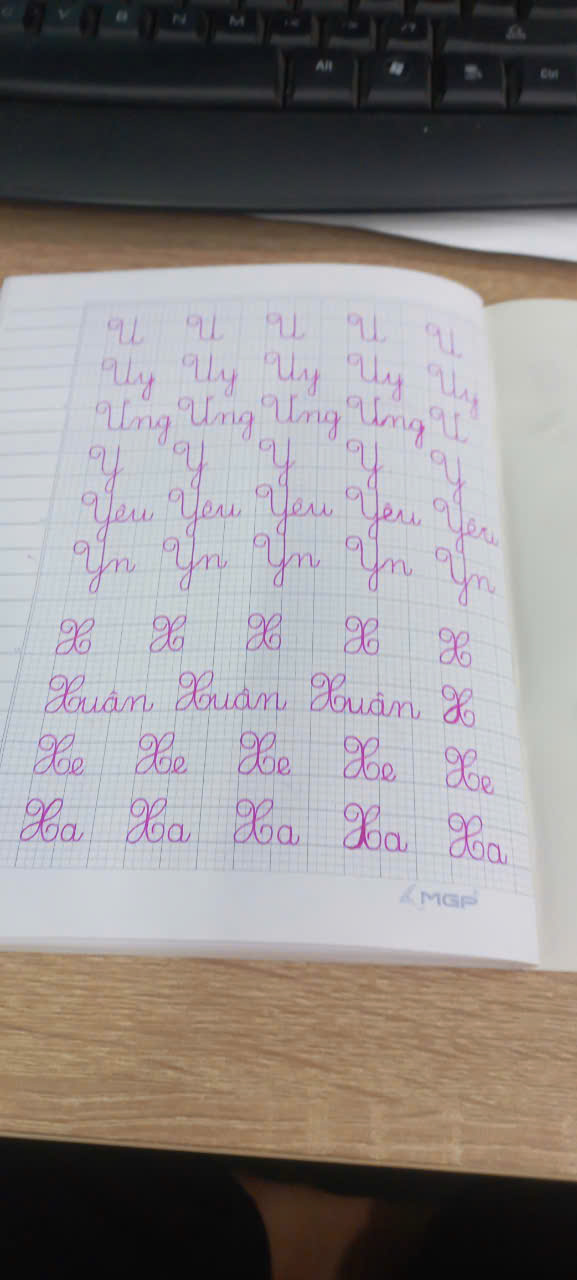 C V B N M
Alt Ctrl
U U U U U
Uy Uy Uy Uy Uy
Ung Ung Ung Ung U
Y Y Y Y Y
Yêu Yêu Yêu Yêu Yêu
Yn Yn Yn Yn Yn
X X X X X
Xuân Xuân Xuân X
Xe Xe Xe Xe Xe
Xa Xa Xa Xa Xa
MGP